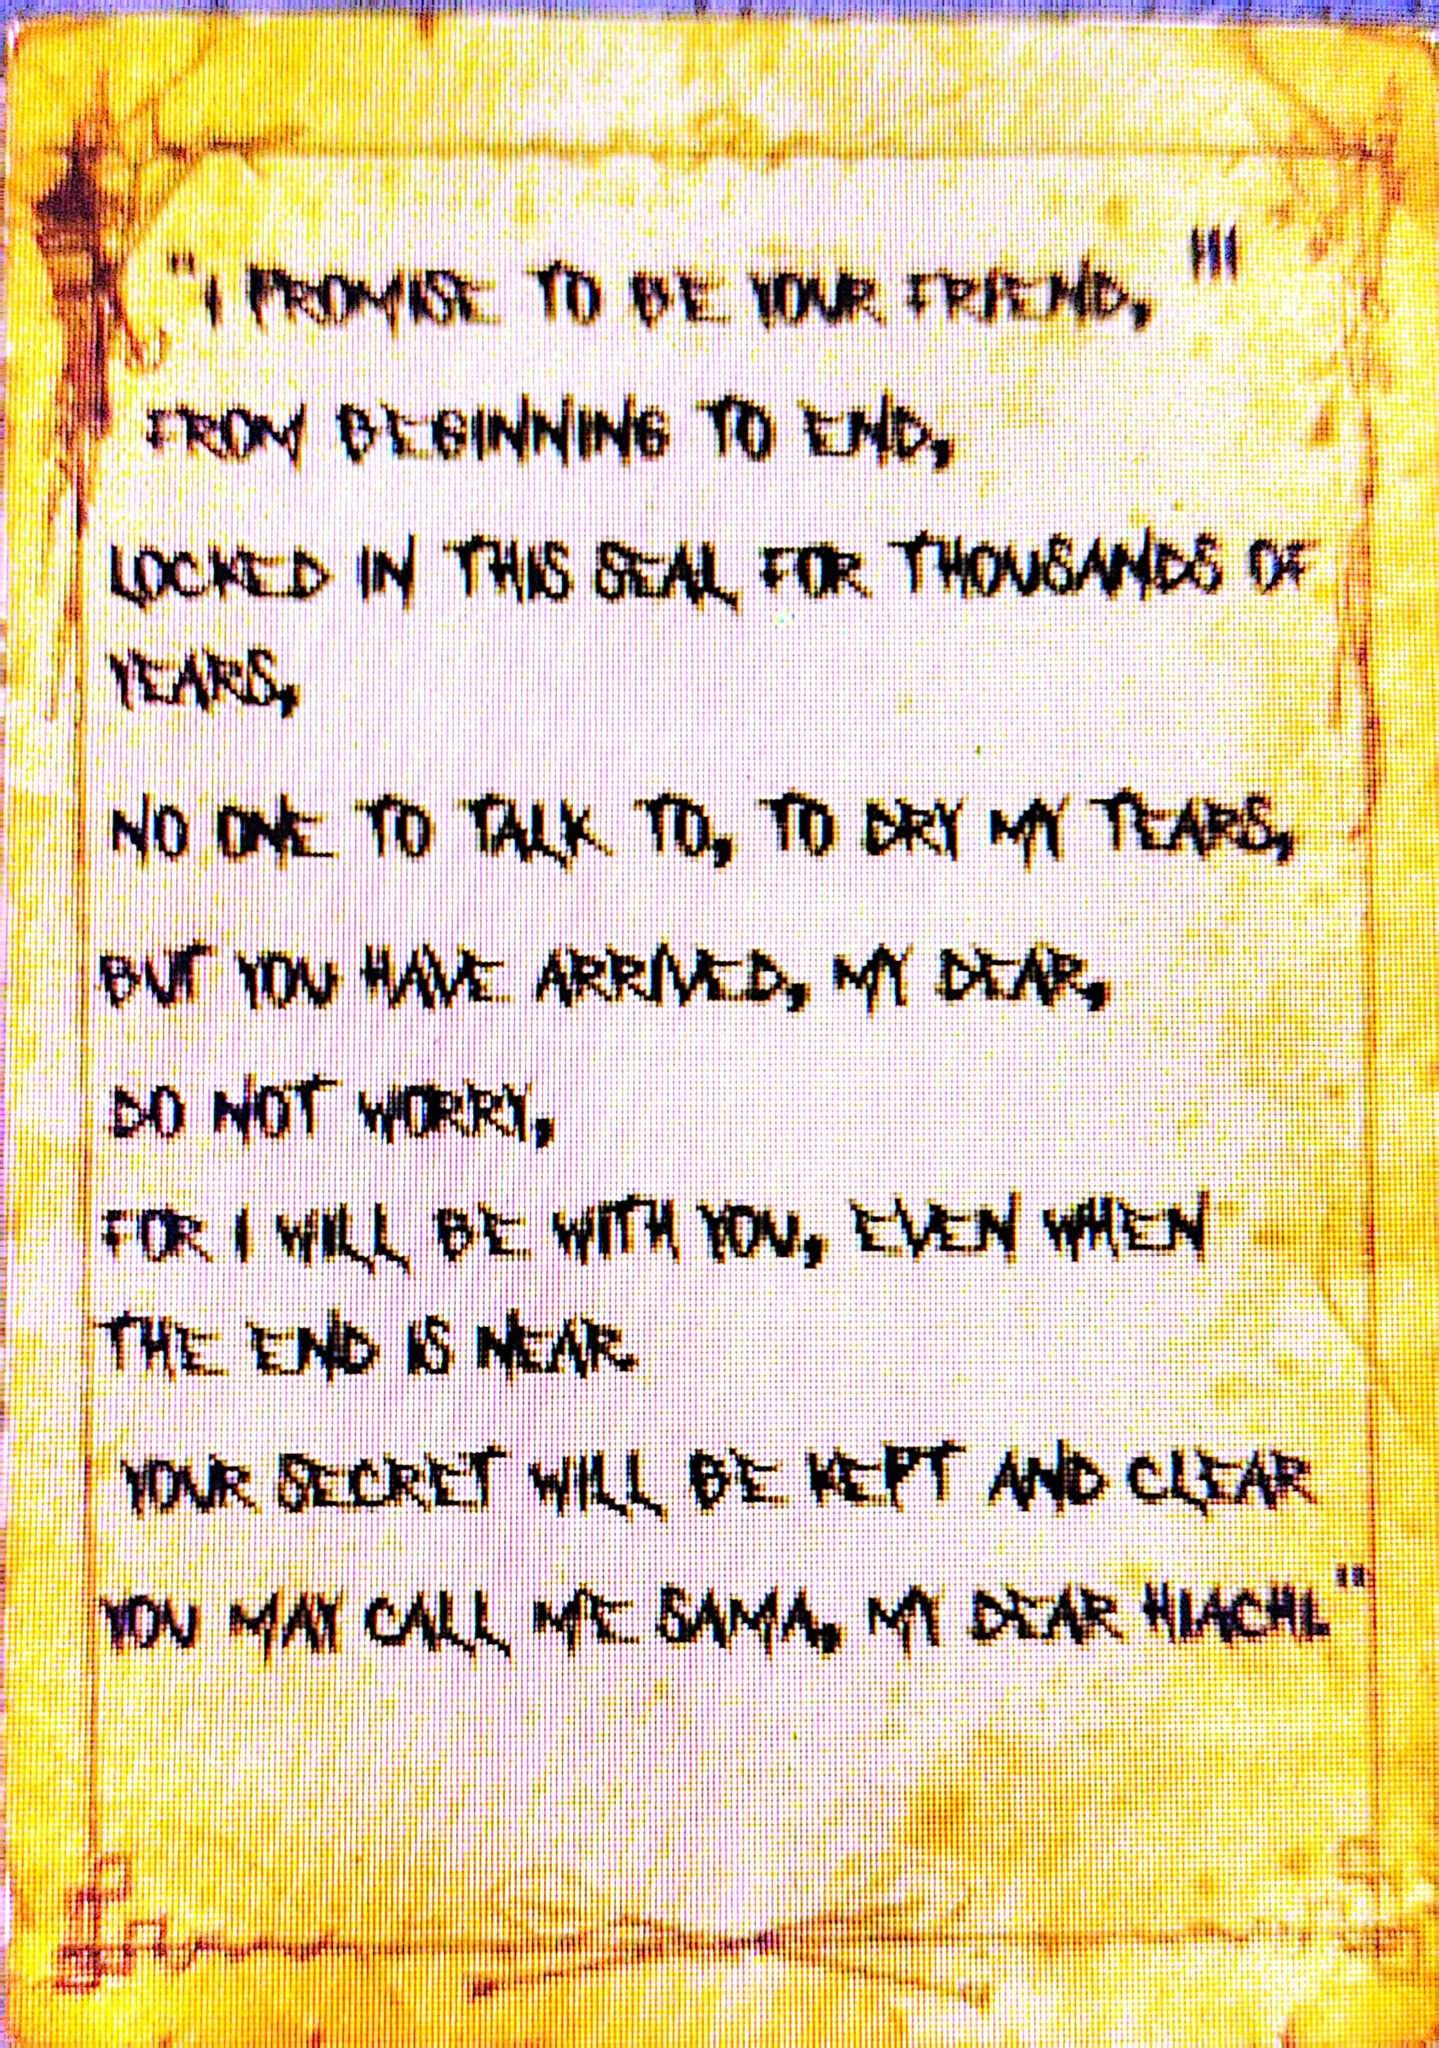 "I PROMISE TO BE YOUR FRIEND, "'
FROM BEGINNING TO END,
LOCKED IN THIS SEAL FOR THOUSANDS OF
YEARS,
NO ONE TO TALK TO, TO DRY MY TEARS,
BUT YOU HAVE ARRIVED, MY DEAR,
DO NOT WORRY,
FOR I WILL BE WITH YOU, EVEN WHEN
THE END IS NEAR.
YOUR SECRET WILL BE KEPT AND CLEAR
YOU MAY CALL ME SAMA, MY DEAR HIACHI."